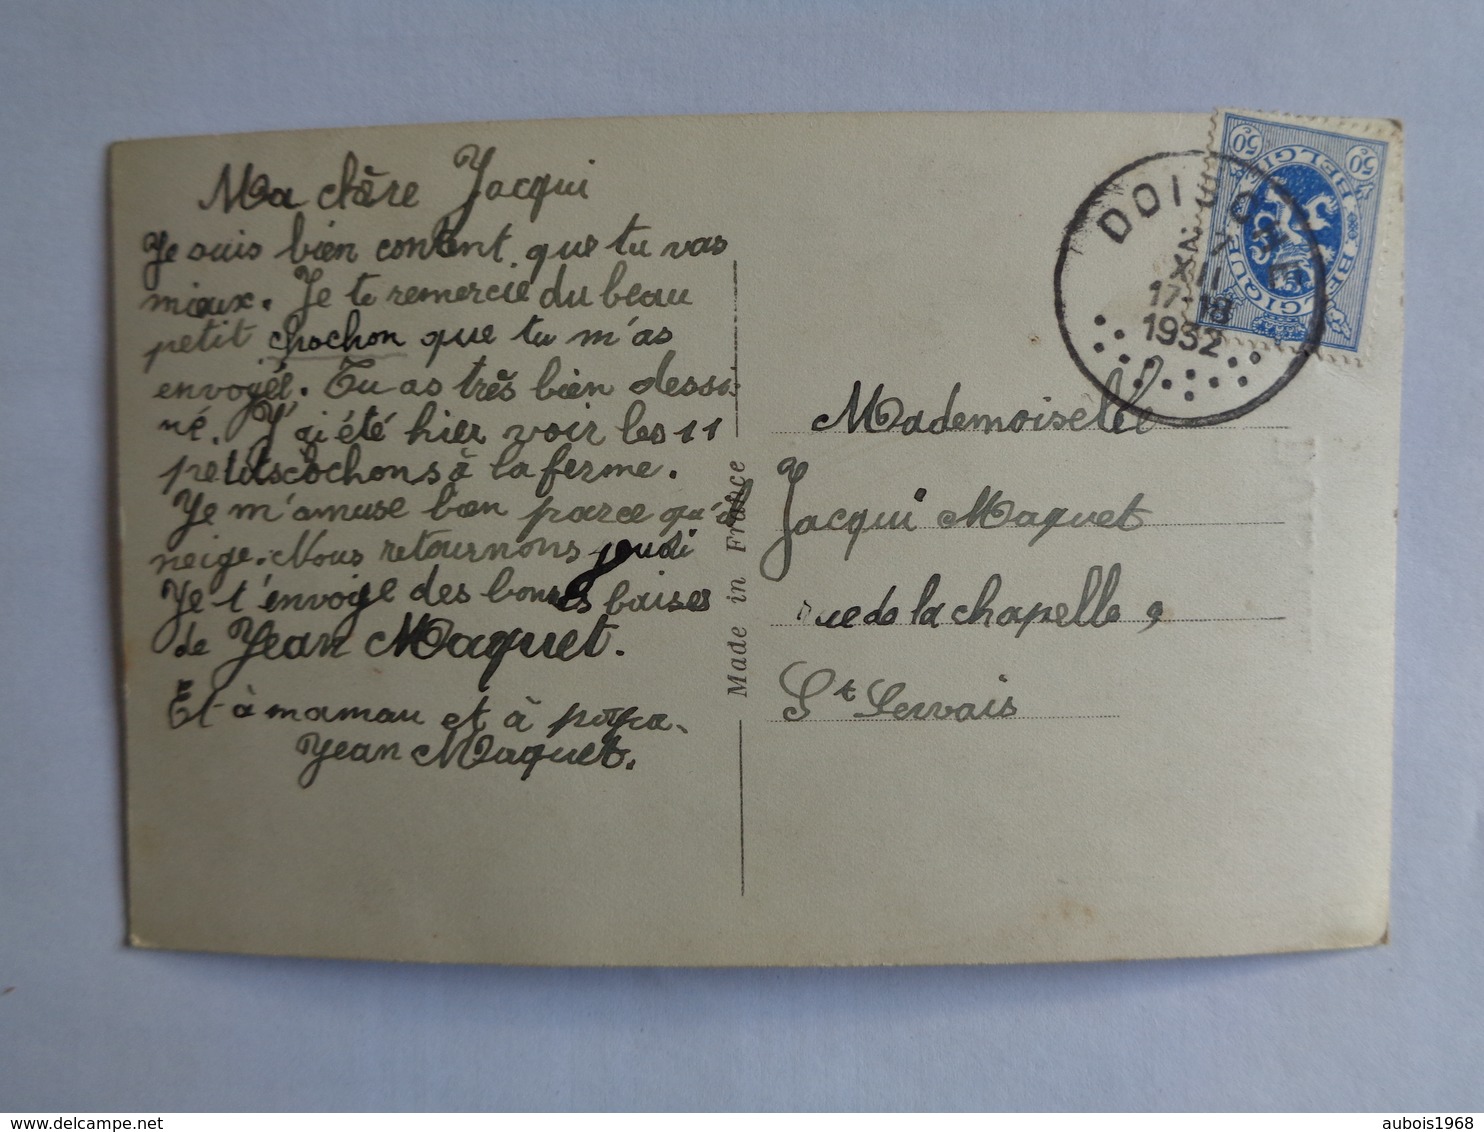 Ma chère Jacqui
Je suis bien content que tu vas
mieux. Je te remercie du beau
petit chochon que tu m'as
envoyée. Tu as très bien dessi
né. J'ai été hier voir les 11
petitscochons à la ferme.
Je m'amuse bien parce qu'il
neige. Nous retournons jeudi
Je t'envoie des bonnes baises
de Jean Maquet.
Et à maman et à papa.
Jean Maquet.
Made in France
DOISCHE
7
XII
17-18
1932
50 50
BELGIE
BELGIQUE
Mademoiselle
Jacqui Maquet
rue de la chapelle 9
St Servais
aubois1968